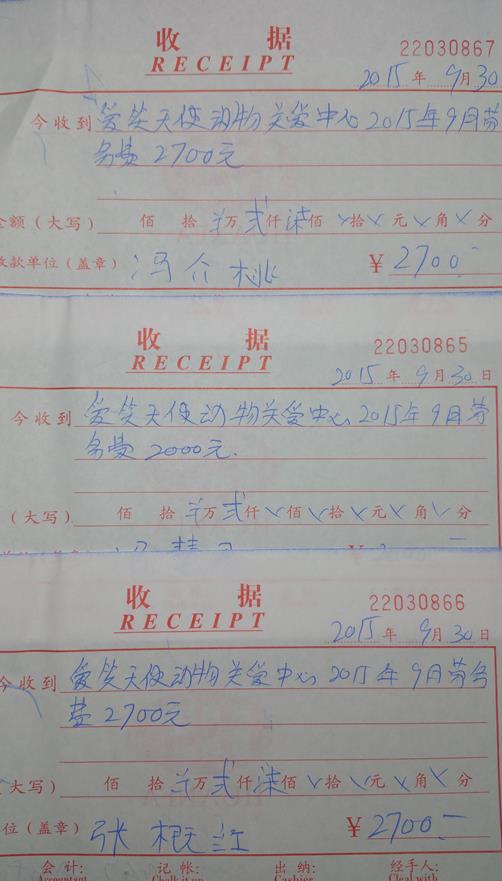 收 据 22030867
RECEIPT
2015年 9月30
今收到 爱笑天使动物关爱中心 2015年9月劳
务费 2700元
金额(大写) 佰 拾 万 贰仟 柒佰 拾 元 角 分
收款单位(盖章) 冯介桃 ¥ 2700
收 据 22030865
RECEIPT
2015年 9月30日
今收到 爱笑天使动物关爱中心 2015年9月劳
务费 2000元.
(大写) 佰 拾 万 贰仟 佰 拾 元 角 分
收 据 22030866
RECEIPT
2015年 9月30日
今收到 爱笑天使动物关爱中心 2015年9月劳务
费 2700元
大写) 佰 拾 万 贰仟 柒佰 拾 元 角 分
位(盖章) 张根江 ¥ 2700
会 计: 记 帐: 出 纳: 经手人: